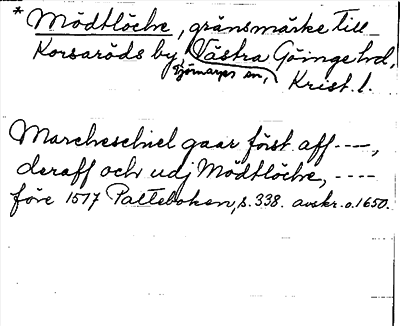 * Mödtlöche, gränsmärke till
Korsaröds by, Västra Göinge hd,
Tjörnarps sn, Krist. l.
Marcheschiel gaar först aff ----,
deraff och udj Mödtlöche, ----
före 1517 Palteboken, s. 338. avskr. o. 1650.